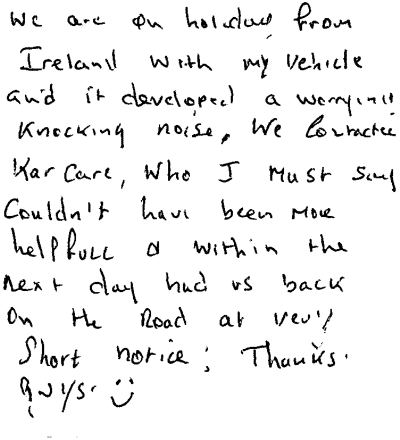 We are on holiday from
Ireland with my vehicle
and it developed a worrying
knocking noise, We contacted
Kar Care, Who I Must Say
Couldn't have been More
helpfull & within the
next day had us back
On the Road at very
Short notice; Thanks.
Guys. ☺